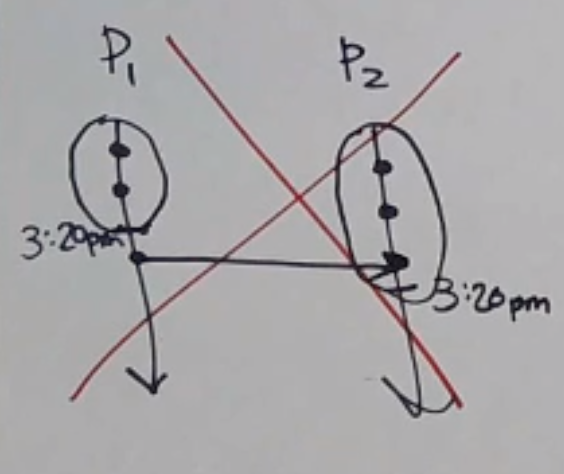 P₁
P₂
3:20pm
3:20pm